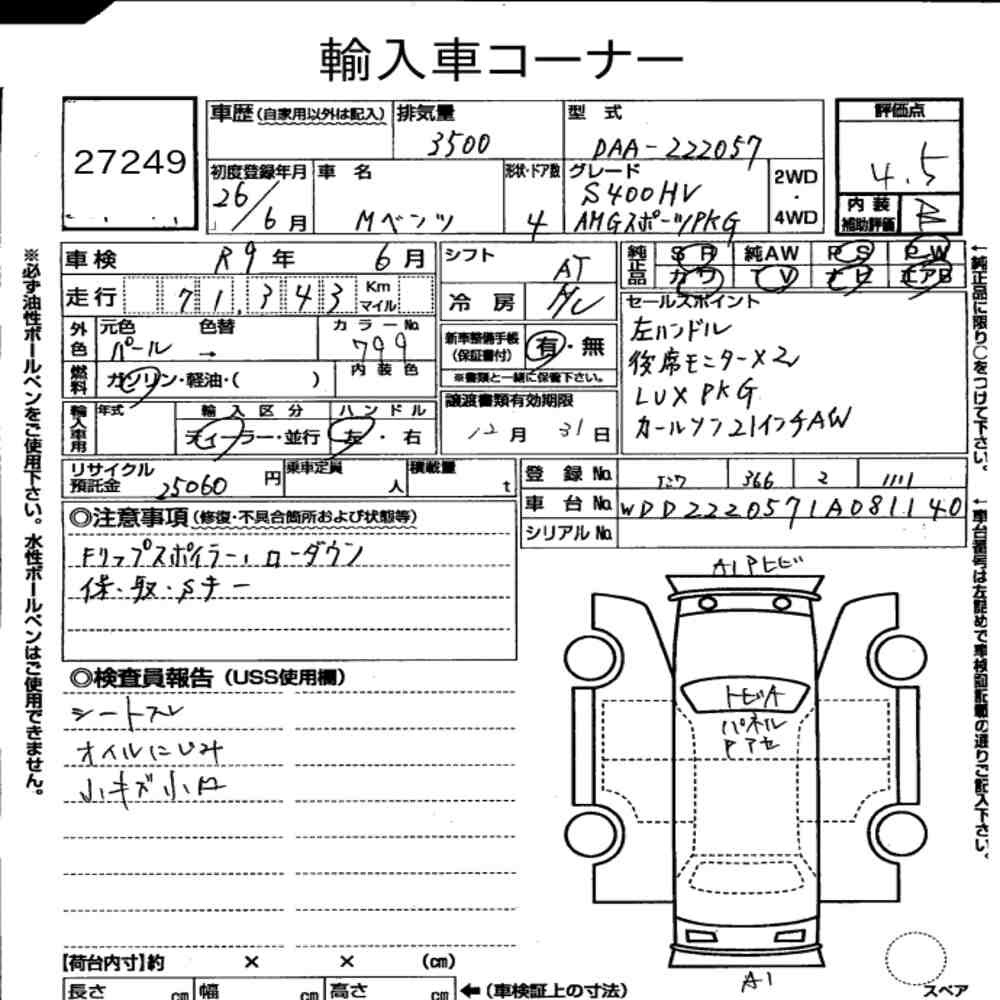 輸入車コーナー
27249
車歴(自家用以外は記入)
排気量
3500
型式
DAA-222057
評価点
4.5
内装補助評価
B
初度登録年月
26/6月
車名
Mベンツ
形状・ドア数
4
グレード
S400HV
AMGスポーツPKG
2WD・4WD
車検
R9年 6月
走行 71,343 Km マイル
シフト
AT
冷房
純正品
SR 純AW PS PW
カワ TV ナビ エアB
外色
元色 色替
パール →
カラーNo.
799
内装色
燃料
ガソリン・軽油・( )
新車整備手帳(保証書付)
有・無
※書類と一緒に保管下さい。
セールスポイント
左ハンドル
後席モニター×2
LUX PKG
カールソン21インチAW
輸入車用
年式
輸入区分
ディーラー・並行
ハンドル
左・右
譲渡書類有効期限
12月 31日
リサイクル預託金
25060円
乗車定員
人
積載量
t
登録No.
366 2 1111
車台No.
WDD2220571A081140
シリアルNo.
◎注意事項(修復・不具合箇所および状態等)
Fリップスポイラー、ローダウン
保・取・Sキー
◎検査員報告(USS使用欄)
シートスレ
オイルにじみ
小キズ小凹
A1 Pトビ
トビA
パネル
Pアセ
A1
スペア
【荷台内寸】約 × × (cm)
長さ cm 幅 cm 高さ cm ←(車検証上の寸法)
※必ず油性ボールペンをご使用下さい。水性ボールペンはご使用できません。
←純正品に限り○をつけて下さい。
←車台番号は左詰めで車検証記載の通りご記入下さい。